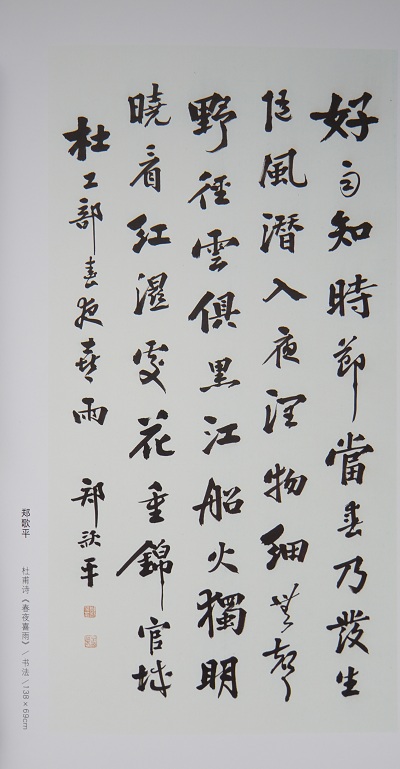 好雨知時節當春乃發生
隨風潛入夜潤物細無聲
野徑雲俱黑江船火獨明
曉看紅濕處花重錦官城
杜工部春夜喜雨 郑歌平
郑歌平
杜甫诗《春夜喜雨》/书法/138×69cm